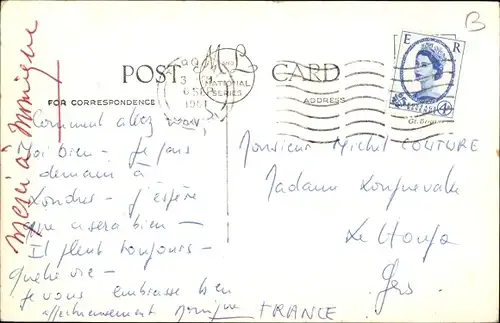 B
E R
POST CARD
NATIONAL
SERIES
FOR CORRESPONDENCE
ADDRESS
merci à Monique
Comment allez vous
moi bien - Je pars
demain à
Londres - J'espère
que ce sera bien -
Il pleut toujours -
quelle vie -
Je vous embrasse bien
affectueusement Monique
Monsieur Michel COUTURE
Madame
Le Houga
Gers
FRANCE